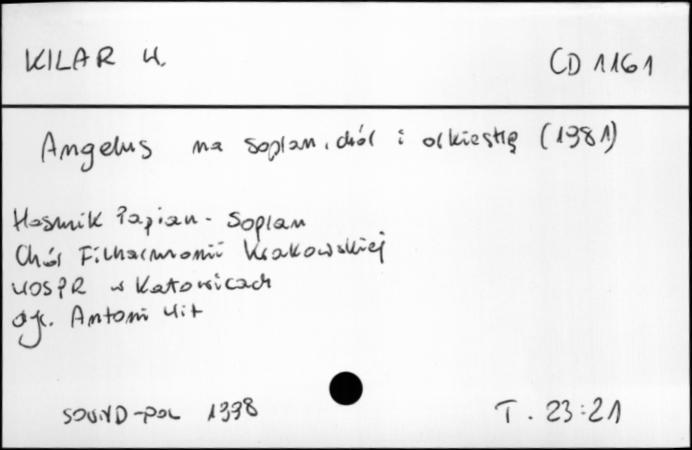 KILAR W. CD 1161
Angelus na sopran, chór i orkiestrę (1981)
Hasmik Papian - Sopran
Chór Filharmonii Krakowskiej
WOSPR w Katowicach
dyr. Antoni Wit
SOUND-POL 1998 T. 23:21